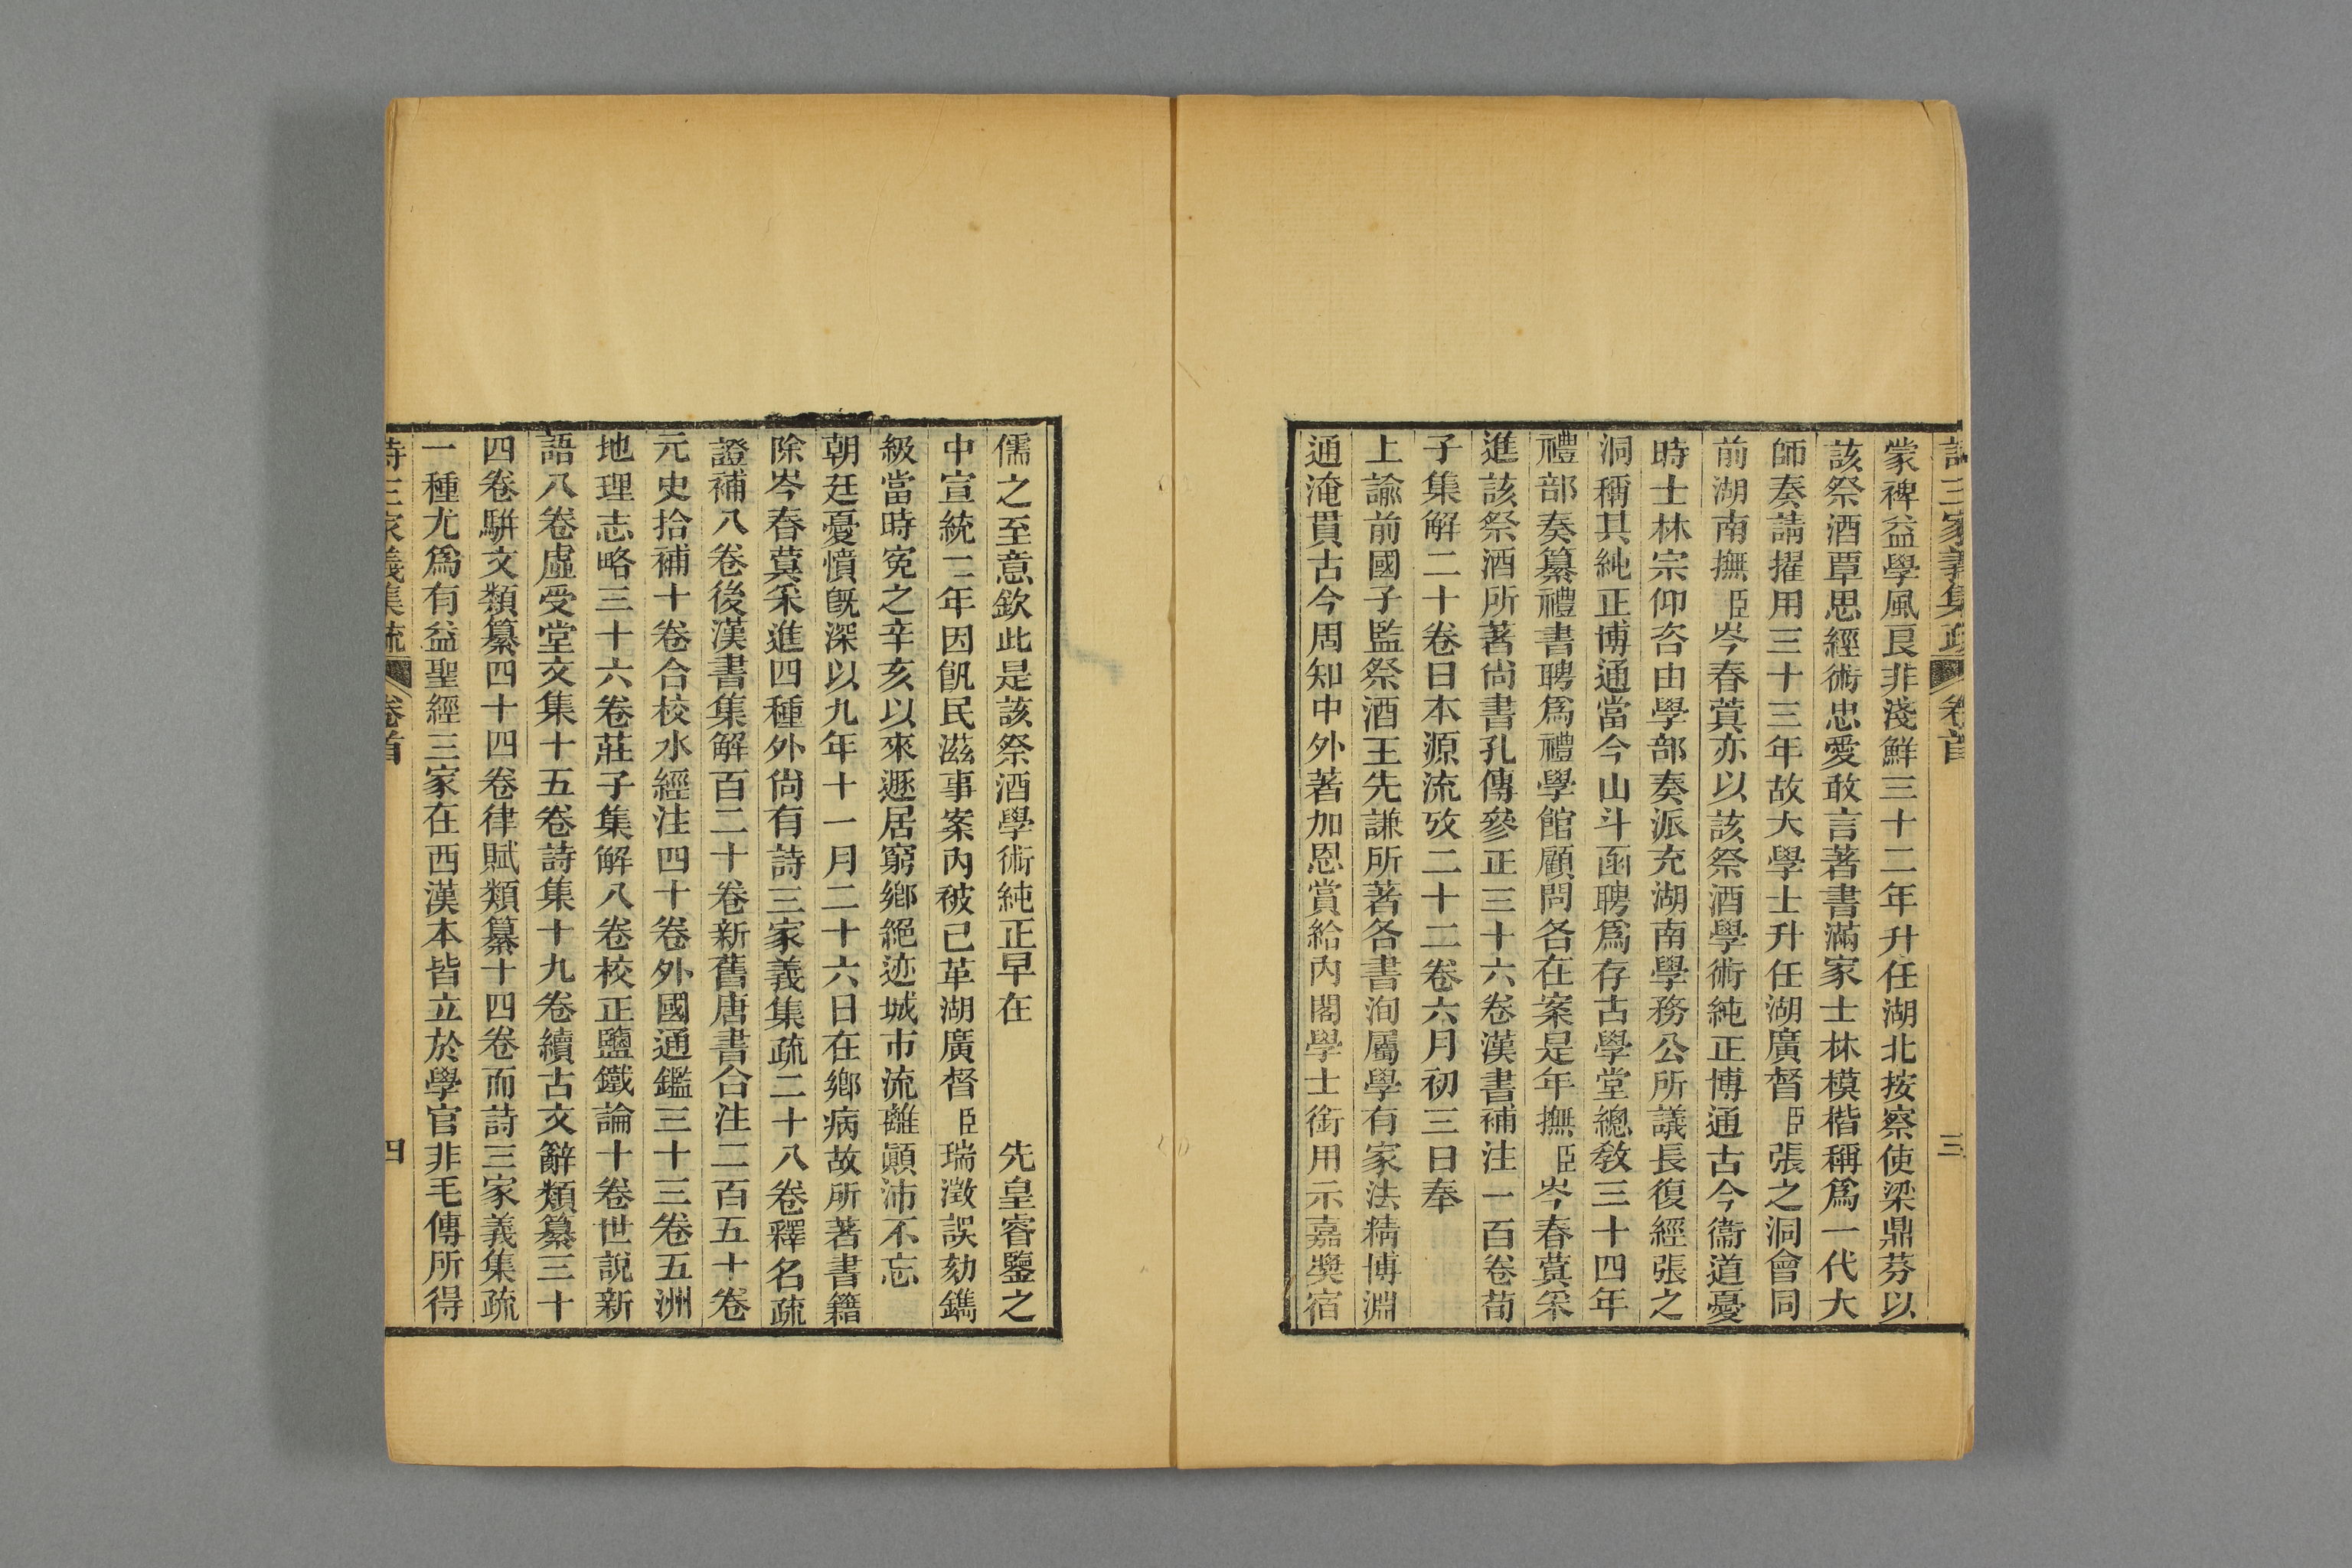 詩三家義集疏 卷首 三
蒙裨益學風良非淺鮮三十二年升任湖北按察使梁鼎芬以
該祭酒覃思經術忠愛敢言著書滿家士林模楷稱爲一代大
師奏請擢用三十三年故大學士升任湖廣督臣張之洞會同
前湖南撫臣岑春蓂亦以該祭酒學術純正博通古今衞道憂
時士林宗仰咨由學部奏派充湖南學務公所議長復經張之
洞稱其純正博通當今山斗函聘爲存古學堂總敎三十四年
禮部奏纂禮書聘爲禮學館顧問各在案是年撫臣岑春蓂采
進該祭酒所著尙書孔傳參正三十六卷漢書補注一百卷荀
子集解二十卷日本源流攷二十二卷六月初三日奉
上諭前國子監祭酒王先謙所著各書洵屬學有家法精博淵
通淹貫古今周知中外著加恩賞給內閣學士銜用示嘉奬宿
儒之至意欽此是該祭酒學術純正早在 先皇睿鑒之
中宣統二年因飢民滋事案內被已革湖廣督臣瑞澂誤劾鐫
級當時寃之辛亥以來遯居窮鄉絕迹城市流離顚沛不忘
朝廷憂憤旣深以九年十一月二十六日在鄉病故所著書籍
除岑春蓂采進四種外尙有詩三家義集疏二十八卷釋名疏
證補八卷後漢書集解百二十卷新舊唐書合注二百五十卷
元史拾補十卷合校水經注四十卷外國通鑑三十三卷五洲
地理志略三十六卷莊子集解八卷校正鹽鐵論十卷世說新
語八卷虛受堂文集十五卷詩集十九卷續古文辭類纂三十
四卷駢文類纂四十四卷律賦類纂十四卷而詩三家義集疏
一種尤爲有益聖經三家在西漢本皆立於學官非毛傳所得
詩三家義集疏 卷首 四